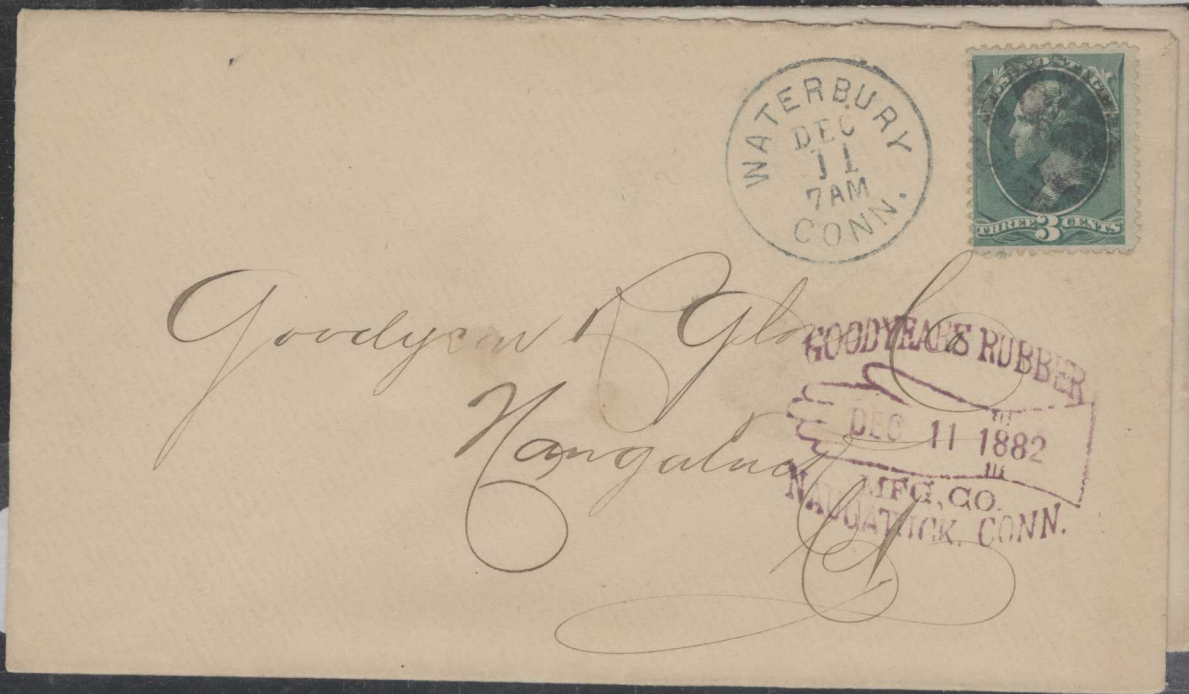 WATERBURY
DEC
11
7AM
CONN.
THREE 3 CENTS
Goodyear R Glove Co
Naugatuck
Ct
GOODYEAR'S RUBBER
DEC 11 1882
MFG, CO.
NAUGATUCK, CONN.